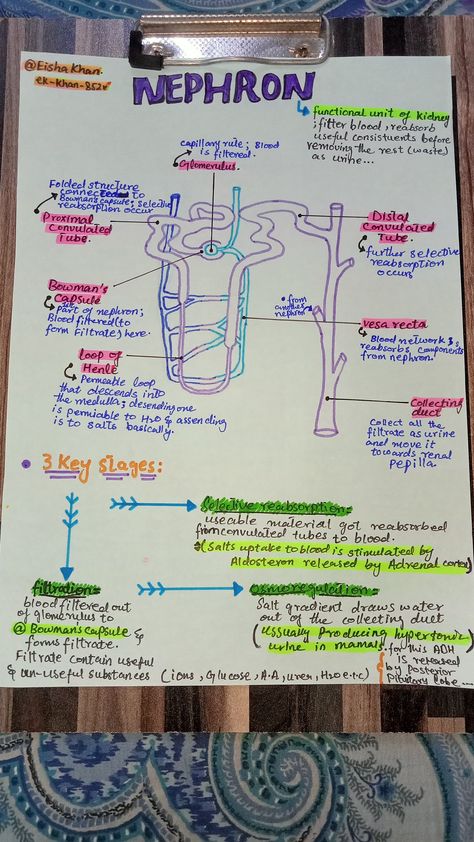 @Eisha Khan.
ek-Khan-852
NEPHRON
functional unit of kidney
; filter blood, reabsorb
useful consistuents before
removing the rest (waste)
as urine...
capillary rute; Blood
is filtered.
Glomerulus
Folded structure
connected to
Bowman's capsule; selective
reabsorption occur
Proximal
Convulated
Tube.
Distal
Convulated
Tube.
further selective
reabsorption
occurs
Bowman's
Capsule
Part of nephron;
Blood filtered (to
form Filtrate) here.
• from
another
nephron
vesa recta
Blood network &
reabsorbs components
from nephron.
loop of
Henle
Permeable loop
that descends into
the medulla; desending one
is permiable to H2O & assending
is to salts basically.
Collecting
duct
Collect all the
filtrate as urine
and move it
towards renal
Pepilla.
• 3 Key stages:
Selective reabsorption:
useable material got reabsorbed
from convulated tubes to blood.
(Salts uptake to blood is stimulated by
Aldosteron released by Adrenal cortex)
filtration:
blood filtered out
of glomerulus to
@ Bowman's capsule &
forms filtrate.
Filtrate contain useful
& un-useful substances (ions, Glucose, A.A, urer, H2O e.t.c)
osmoregulation:
Salt gradient draws water
out of the collecting duct
(ussually Producing hypertonic
urine in mamals.
for this ADH
is released
by Posterior
Pitutary lobe....